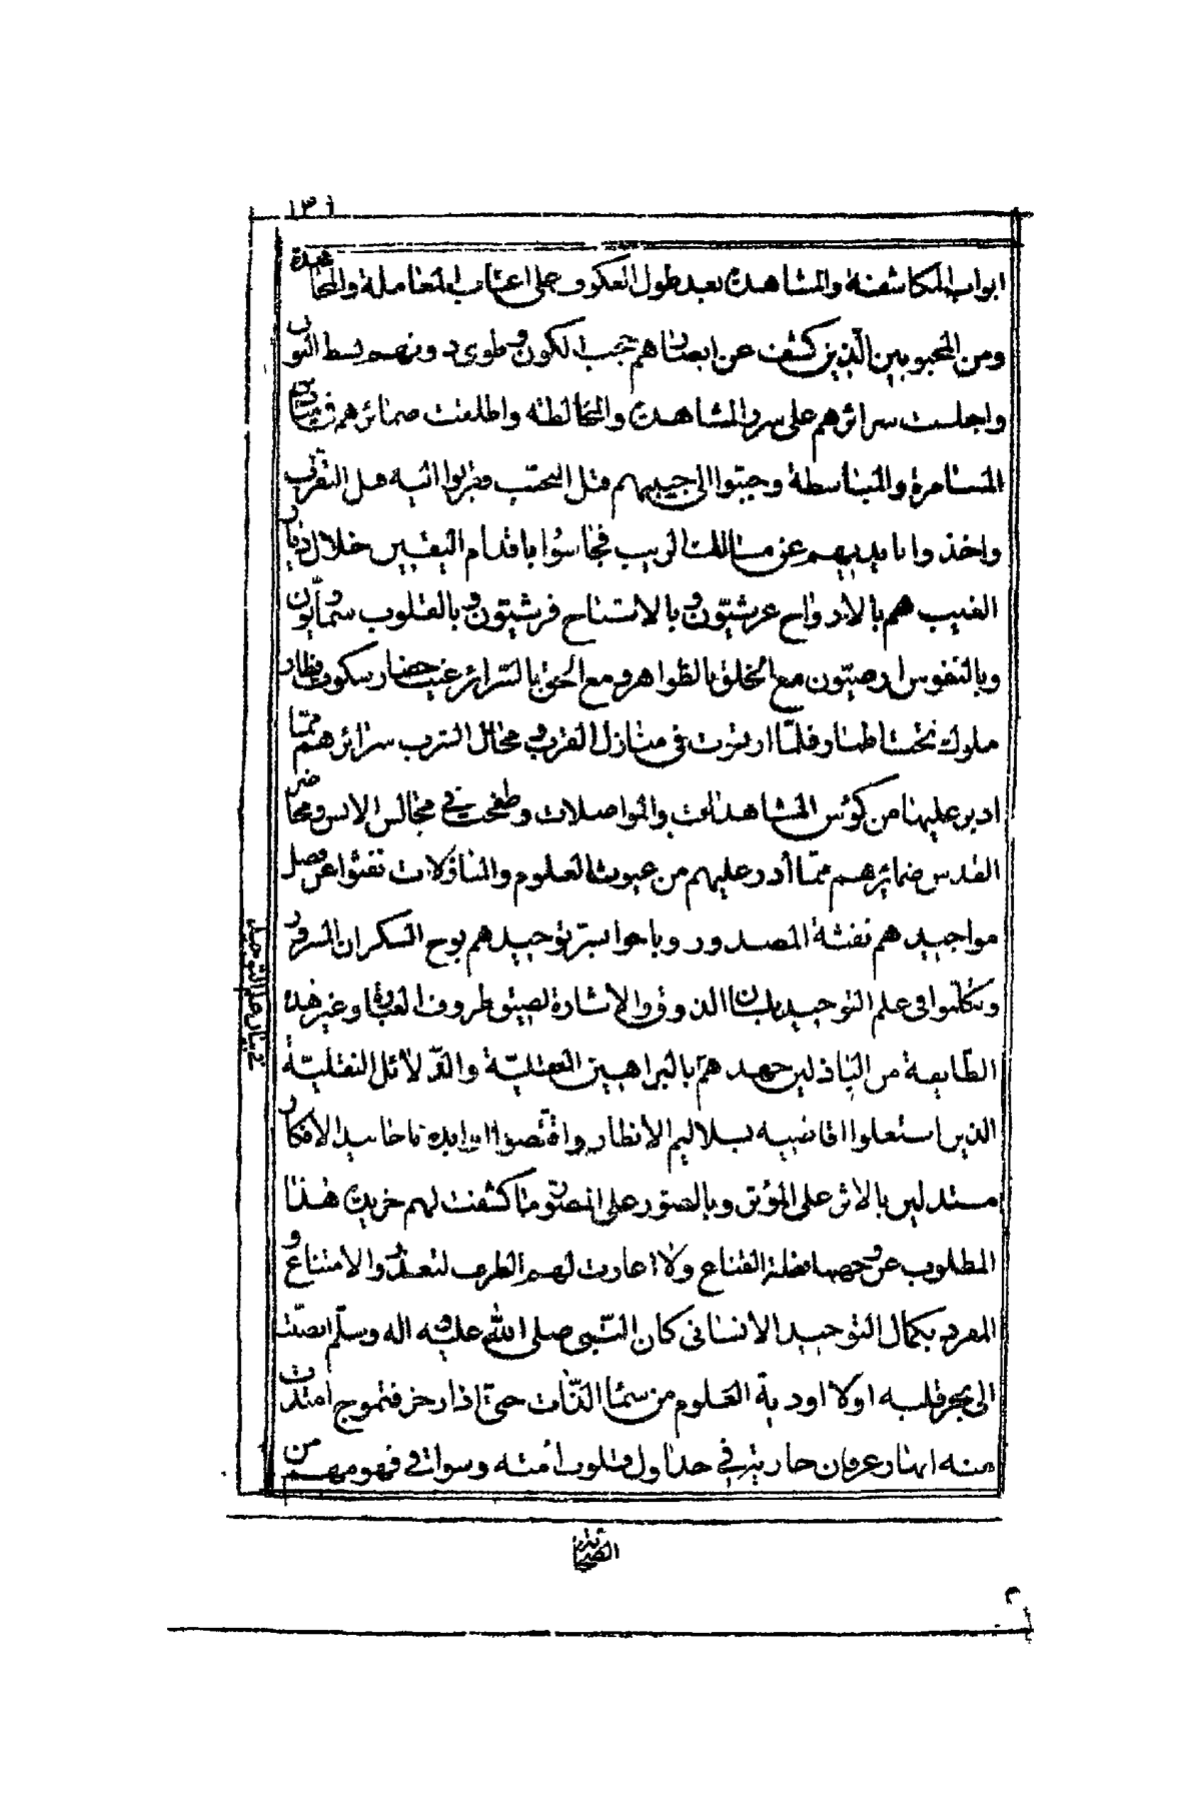 ١٣١
ابواب المكاشفة والمشاهدة بعد طول العكوف على اعتاب المعاملة والمجاهدة
ومن المحبوبين الذين كشفت عن ابصارهم حجب الكون وطوى دونهم بساط البون
واجلست سرائرهم على سرر المشاهدة والمخالطة واطلعت ضمائرهم في
المسامرة والمباسطة وجبتوا الى حبيبهم قبل التحبب فقربوا اليه قبل التقرب
واخذوا بايديهم عن مسالك الريب فجاسوا باقدام اليقين خلال ديار
الغيب هم بالارواح عرشيّون وبالاشباح فرشيّون وبالقلوب سماويّون
وبالنفوس ارضيّون مع الخلق بالظواهر ومع الحق بالسّرائر غيب حضار سكوت نظار
ملوك تحت اطمار فلمّا ارتوت فى منازل القرب ومحال الشرب سرائرهم ممّا
ادير عليها من كؤس المشاهدات والمواصلات وطفحت في مجالس الانس ومحاضر
القدس ضمائرهم ممّا أدر عليهم من غيوث العلوم والمنازلات نفثوا عن فضل
مواجيدهم نفثة المصدور وباحوا بسرّ توحيدهم بوح السكران المسرور
وتكلّموا فى علم التوحيد بلسان الذوق والاشارة لضيق ظروف العبارة وغير هذه
الطّايفة من الباذلين جهدهم بالبراهين العقليّة والدّلائل النقليّة
الذين استعلوا اقاصيه بسلاليم الانظار واقتصوا اوابده باحابيل الافكار
مستدلين بالاثر على المؤثر وبالصور على المصور ما كشفت لهم خريدة هذا
المطلوب عن وجهها فضلة القناع ولا اعارت لهم الطرف لتعذّر والامتناع و
المفرد بكمال التوحيد الانسانى كان النّبى صلى الله عليه واله وسلّم انصبّت
الى بحر قلبه اولا اودية العلوم من سماء الذّات حتى اذا زخر فتموج امتدت
منه انهار عرفان جارية في جداول قلوب امّته وسواقى فهومهم من
فى بيان علم التوحيد
الصحابة